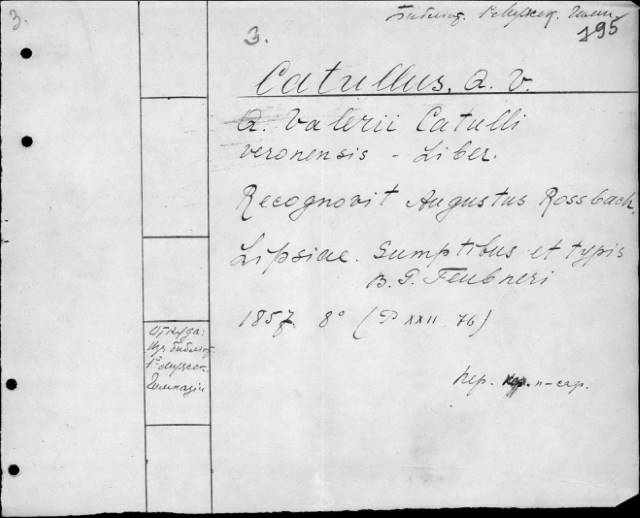 3.
Библиот. 1ой Мужск. Гимн.
195
3.
Catullus, Q. V.
Q. Valerii Catulli
veronensis - Liber.
Recognovit Augustus Rossbach
Lipsiae. Sumptibus et typis
B. G. Teubneri
1857. 8° (P XXII 76)
Откуда:
Из библиот.
1ой Мужск.
Гимназіи
пер.